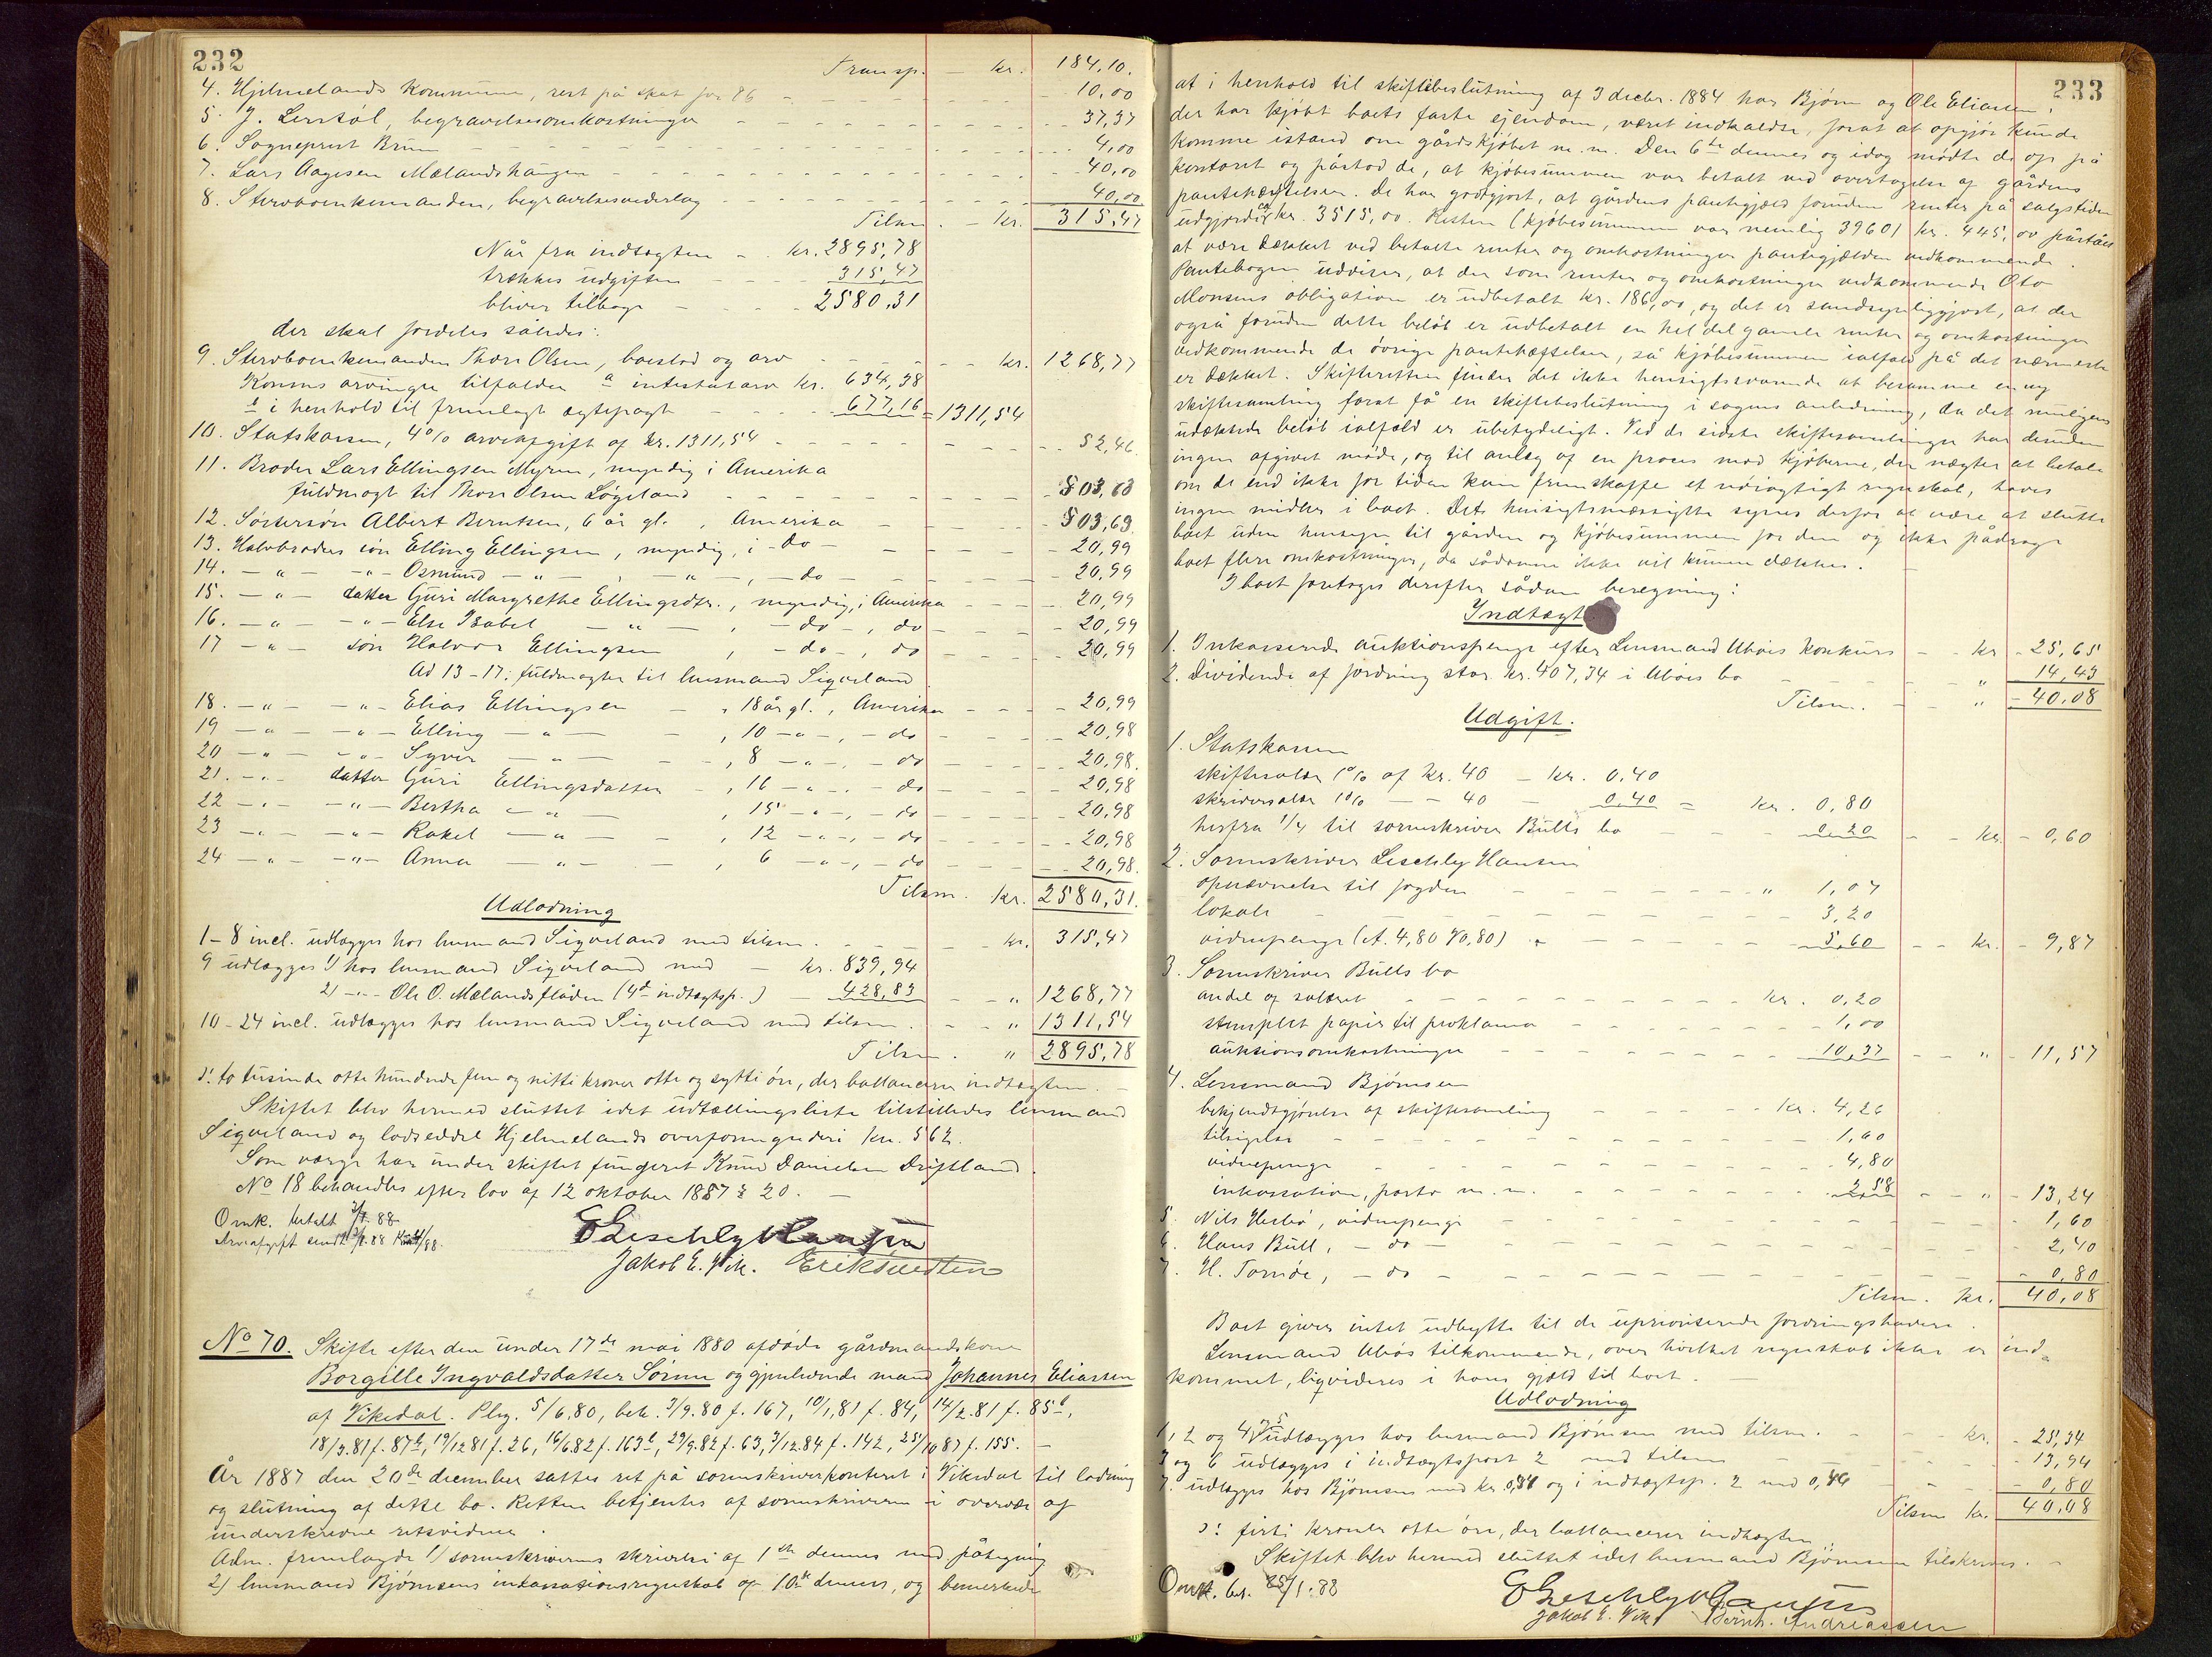 232
Transp. — kr. 184,10.
4. Hjelmelands kommune, rest på skat for 86 - - - 10,00
5. J. Lerstøl, begravelsesomkostninger - - - 37,37
6. Sogneprest Brun - - - 4,00
7. Lars Aagesen Mælandshaugen - - - 40,00
8. Stervboenkemanden, begravelsesvederlag - - - 40,00
Tilsm. — kr. 315,47
Når fra indtægten - kr. 2895,78
trækkes udgiften - - - 315,47
bliver tilbage - - - 2580,31
der skal fordeles således:
9. Stervboenkemanden Thore Olsen, boeslod og arv - - - kr. 1268,77
Konens arvinger tilfalder a intestatarv kr. 634,38
b i henhold til fremlagt ægtepagt - - 677,16 = 1311,54
10. Statskassen, 4% arveafgift af kr. 1311,54 - - - 52,46
11. Broder Lars Ellingsen Myren, myndig i Amerika
fuldmagt til Thore Olsen Løgeland - - - 503,68
12. Søstersøn Albert Berntsen, 6 år gl., Amerika - - - 503,69
13. Halvbroders søn Elling Ellingsen, myndig, i - do - - - 20,99
14. — " — - " - Osmund — " — , — " — , — do - - - 20,99
15. — " — datter Guri Margrethe Ellingsdtr., myndig, i Amerika - - - 20,99
16. — " — - " - Else Isabel — " — , — do , do - - - 20,99
17 — " — søn Halvor Ellingsen , - do - , do - - - 20,99
Ad 13-17: fuldmagter til lensmand Sigveland
18. — " — - " - Elias Ellingsen — , 18 år gl., Amerika - - - 20,99
19 — " — - " - Elling — " — — , 10 - " - , - do - - - 20,98
20 — " — - " - Syver — " — — , 8 - " - , - do - - - 20,98.
21. — " — datter Guri Ellingsdatter — , 16 - " - , - do - - - 20,98
22 — " — - " - Bertha — " — , 15 - " - , - do - - - 20,98
23 — " — - " - Rakel — " — , 12 - " - , - do - - - 20,98
24 — " — - " - Anna — " — , 6 - " - , - do - - - 20,98.
Tilsm. kr. 2580,31.
Udlodning
1-8 incl. udlægges hos lensmand Sigveland med tilsm. - - - kr. 315,47
9 udlægges 1) hos lensmand Sigveland med — kr. 839,94
2) - " - Ole O. Mælandsflåden (4de indtægtsp.) — 428,83 - - " 1268,77
10-24 incl. udlægges hos lensmand Sigveland med tilsm. - - " 1311,54
Tilsm. " 2895,78
ɔ: to tusinde otte hundrede fem og nitti kroner otte og sytti øre, der ballancerer indtægten. —
Skiftet blev hermed sluttet idet udtællingsliste tilstilledes lensmand
Sigveland og lodseddel Hjelmelands overformynderi kn. 562.
Som værge har under skiftet fungeret Knud Danielsen Driftland.
No 18 behandles efter lov af 12 oktober 1887 § 20. —
Omk. betalt
Arveafgift sendt
E Leschly Hansen
Jakob E. Vik. Erik
No 70. Skifte efter den under 17de mai 1880 afdøde gårdmandskone
Borgille Ingvaldsdatter Sørene og gjenlevende mand Johannes Eliassen
af Vikedal. Plrg. 5/6.80, beh. 3/9.80 f. 167, 10/1.81 f. 84, 14/2.81 f. 85b,
18/3.81 f. 87b, 19/12 81 f. 26, 16/6.82 f. 163b, 29/9.82 f. 63, 3/12.84 f. 142, 25/10 87 f. 155. —
År 1887 den 20de december sattes ret på sorenskriverkontoret i Vikedal til lodning
og slutning af dette bo. Retten betjentes af sorenskriveren i overvær af
underskrevne retsvidner.
Adm. fremlagde 1) sorenskriverens skrivelse af 1ste dennes med påtegning
2) lensmand Bjørnsens inkassationsregnskab af 10de dennes, og bemerkede
233
at i henhold til skiftebeslutning af 3 decbr. 1884 har Bjørn og Ole Eliassen,
der har kjøbt boets faste ejendom, været indkaldte, forat at opgjør kunde
komme istand om gårdskjøbet m.m. Den 6te dennes og idag mødte de op på
kontoret og påstod de, at kjøbesummen var betalt ved overtagelse af gårdens
pantehæftelser. De har godtgjort, at gårdens pantegjæld foruden renter på salgstiden
udgjorde ca. kr. 3515,00. Resten (kjøbesummen var nemlig 3960) kr. 445,00 påståes
at være dækket ved betalte renter og omkostninger pantegjælden vedkommende.
Pantebogen udviser, at der som renter og omkostninger vedkommende Oto
Monsens obligation er udbetalt kr. 186,00, og det er sandsynliggjort, at der
også foruden dette beløb er udbetalt en hel del gamle renter og omkostninger
vedkommende de øvrige pantehæftelser, så kjøbesummen ialfald på det nærmeste
er dækket. Skifteretten finder det ikke hensigtssvarende at beramme en ny
skiftesamling forat få en skiftebeslutning i sagens anledning, da det muligens
udækkede beløb ialfald er ubetydeligt. Ved de sidste skiftesamlinger har desuden
ingen afgivet møde, og til anlæg af en proces mod kjøberne, der nægter at betale
om de end ikke for tiden kan fremskaffe et nøiagtigt regnskab, haves
ingen midler i boet. Det hensigtsmæssigste synes derfor at være at slutte
boet uden hensyn til gården og kjøbesummen for den og ikke pådrage
boet flere omkostninger, da sådanne ikke vil kunne dækkes.
I boet foretoges derefter sådan beregning:
Indtægt
1. Inkasserede auktionspenge efter Lensmand Ubøes konkurs - - kr - 25,65
2. Dividende af fordring stor kr. 407,34 i Ubøes bo - - - " 14,43
Tilsm. - - " - 40,08
Udgift.
1. Statskassen
skiftesalær 1% af kr. 40 — kr. 0,40
skriversalær 1% — - 40 — 0,40 = kr. 0,80
herfra 1/4 til sorenskriver Bulls bo - - - 0,20 - - kr. - 0,60
2. Sorenskriver Leschly Hansen
opnævnelse til fogden - - - " 1,07
lokale - - - 3,20
vidnepenge (A. 4,80 % 0,80) - - - 5,60 - - kr. - 9,87
3. Sorenskriver Bulls bo
andel af salæret - - - kr. 0,20
stemplet papir til proklama - - - 1,00
auktionsomkostninger - - - 10,37 - - " - 11,57
4. Lensmand Bjørnsen
bekjendtgjørelse af skiftesamling - - - kr. 4,26
tilsigelse - - - 1,60
vidnepenge - - - 4,80
inkassation, porto m.m. - - - 2,58 - - " - 13,24
5. Nils Hesbø, vidnepenge - - - 1,60
6. Hans Bull, — do — - - - 2,40
7. H. Tornøe, — do — - - - 0,80
Tilsm. kr. 40,08
Boet giver intet udbytte til de uprioriterede fordringshavere.
Lensmand Ubøes tilkommende, over hvilket regnskab ikke er ind-
kommet, liqvideres i hans gjæld til boet.
Udlodning
1, 2 og 4, 5 udlægges hos lensmand Bjørnsen med tilsm. - - - kr. - 25,34
3 og 6 udlægges i indtægtspost 2 med tilsm - - - 13,94
7. udlægges hos Bjørnsen med kr. 0,34 og i indtægtsp. 2 med 0,46 - - - 0,80
Tilsm kr. 40,08
ɔ: firti kroner otte øre, der ballancerer indtægten
Skiftet blev hermed sluttet idet lensmand Bjørnsen tilskrives. —
Omk. bet. 25/1.88
E Leschly Hansen
Jakob E. Vik Bernh. Andreassen